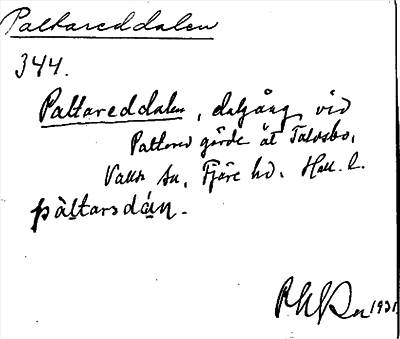 Paltareddalen
344.
Paltareddalen, dalgång vid
Paltared gärde åt Talosbo,
Valla sn, Fjäre hd. Hall. l.
pàltarsdán.
1931